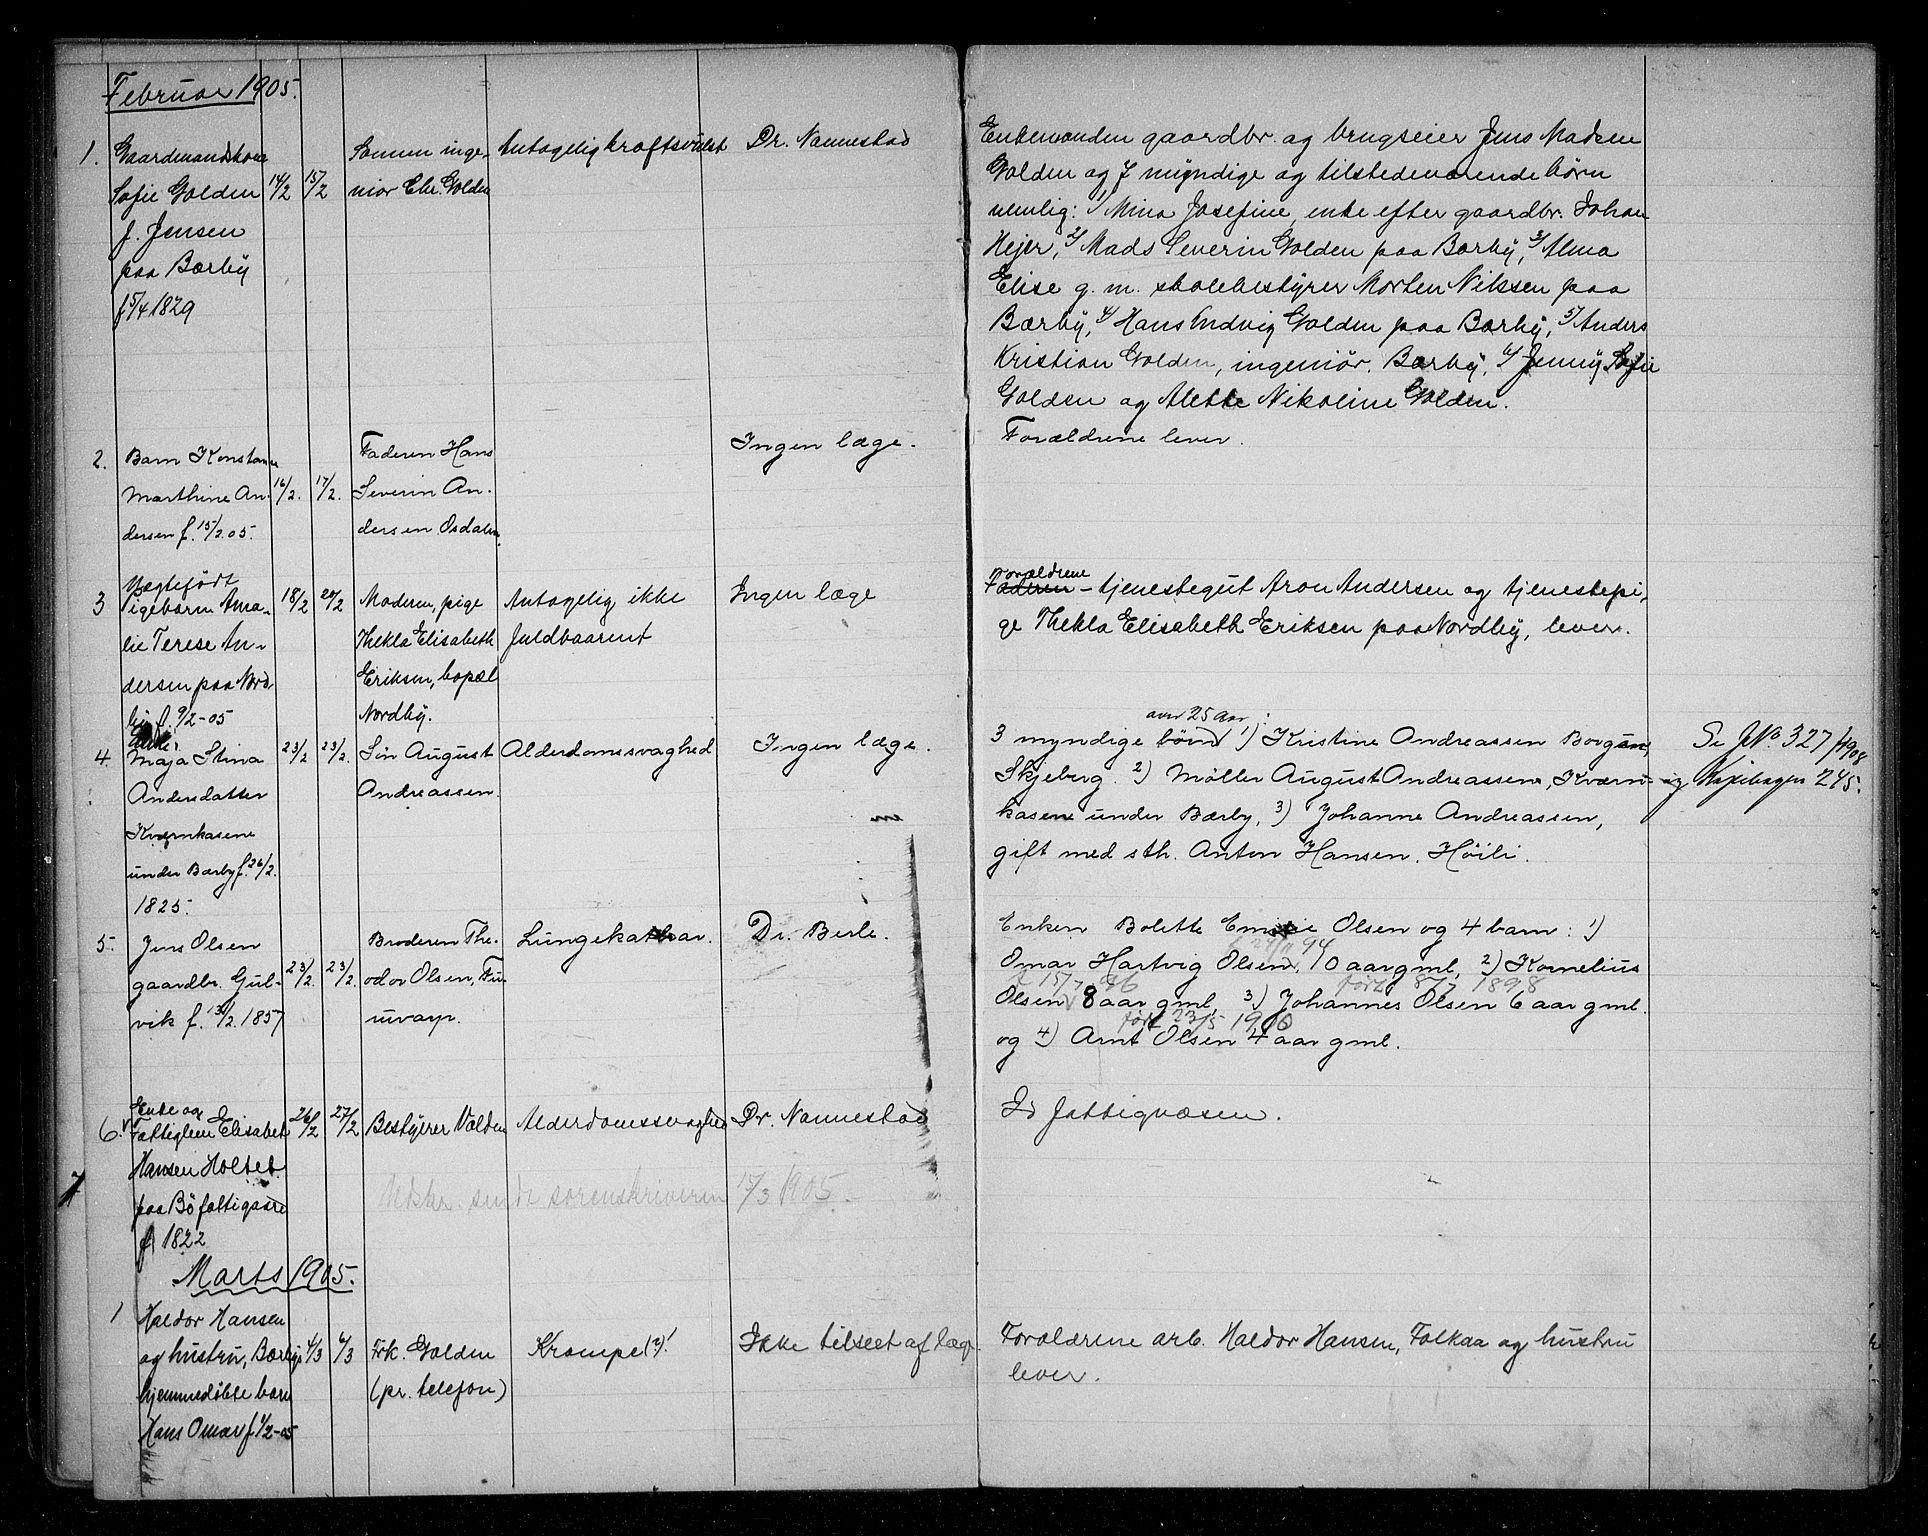 Februar 1905.
1.
Gaardmandskone
Sofie Golden
f. Jensen
paa Bærby
f 5/4 1829
14/2
15/2
Sønnen inge-
niør Chr. Golden
Antagelig kræftsvulst
Dr. Nannestad
Enkemanden gaardbr. og brugseier Jens Madsen
Golden og 7 myndige og tilstedeværende børn
nemlig: 1/ Mina Josefine, enke efter gaardbr. Johan
Hejer, 2/ Mads Severin Golden paa Bærby, 3/ Alma
Elise g. m. skolebestyrer Morten Nilssen paa
Bærby, 4/ Hans Ludvig Golden paa Bærby, 5/ Anders
Kristian Golden, ingeniør, Bærby, 6/ Jenny Sofie
Golden og Alette Nikoline Golden.
2.
Barn Konstanse
Marthine An-
dersen f. 15/2. 05.
16/2.
17/2.
Faderen Hans
Severin An-
dersen Osdalen.
Ingen læge.
Forældrene lever.
3
Uægtefødt
Pigebarn Ama-
lie Terese An-
dersen paa Nord-
by f. 9/2-05
18/2
20/2
Moderen, pige
Thekla Elisabeth
Eriksen, bopæl
Nordby.
Antagelig ikke
fuldbaarent
Ingen læge
Forældrene
Faderen - tjenestegut Aron Andersen og tjenestepi-
ge Thekla Elisabeth Eriksen paa Nordby, lever.
4.
Enke
Maja Stina
Andersdatter
Kværnkasene
under Bærby f. 26/2.
1825.
23/2
23/2.
Søn August
Andreassen.
Alderdomssvaghed
Ingen læge.
over 25 aar:
3 myndige børn 1) Kristine Andreassen Borgen,
Skjeberg. 2) Møller August Andreassen, Kværn-
kasene under Bærby, 3) Johanne Andreassen,
gift med sth. Anton Hansen, Høili.
Se JNo. 327/1908
og Kopibogen 245.
5.
Jens Olsen
gaardbr. Gul-
vik f. 13/2. 1857
23/2.
23/2.
Broderen The-
odor Olsen, Fu-
ruvarp.
Lungekathar.
Dr. Berle.
Enken Bolette Emilie Olsen og 4 barn: 1)
Omar Hartvig Olsen, 10 aar gml, 2) Kornelius
født 8/7 1898
Olsen 8 aar gml, 3) Johannes Olsen 6 aar gml.
født 23/5 1900
og 4) Arnt Olsen 4 aar gml.
6.
Enke og
Fattiglem Elisabet
Hansen Holtet
paa Bø fattiggaard
f 1822
26/2
27/2
Bestyrer Valden
Alderdomssvaghed
Dr. Nannestad
I fattigvæsen.
7
Udskr. sendt sorenskriveren 17/3 1905.
Marts 1905.
1
Haldor Hansen
og hustru, Bærbys
hjemmedøbte barn
Hans Omar f 1/2-05
4/3
6/3
Frk. Golden
(pr. telefon)
Krampe (?)!
Ikke tilseet af læge.
Forældrene arb. Haldor Hansen, Folkaa og hustru
lever.